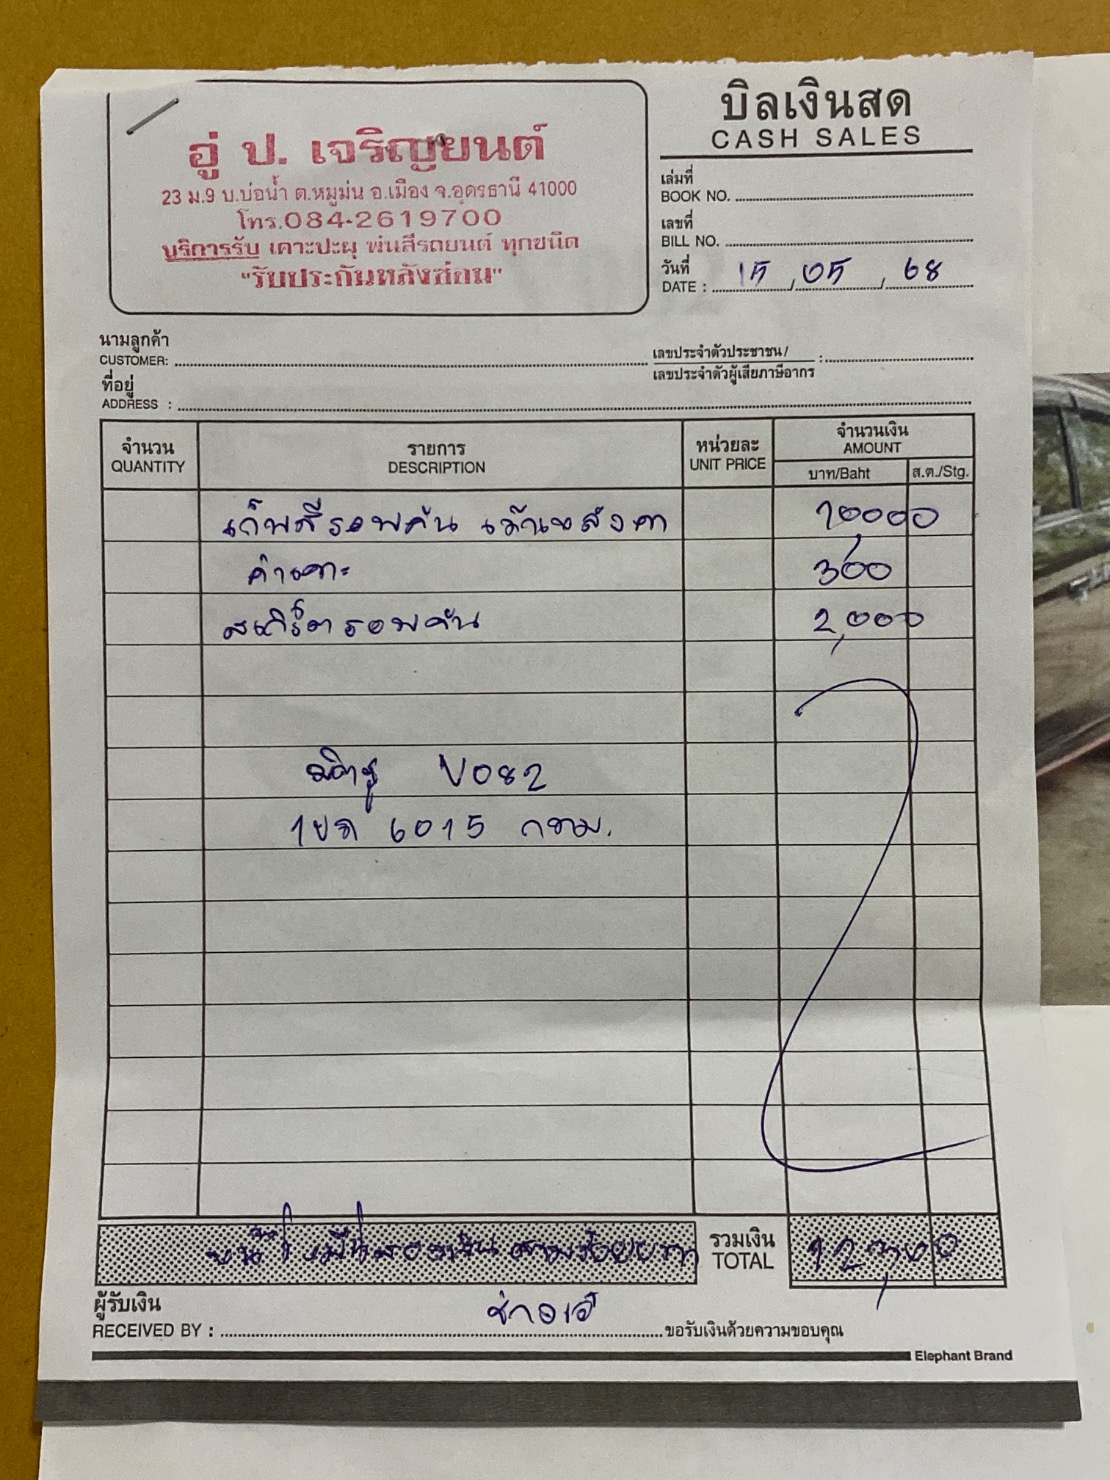 อู่ ป. เจริญยนต์
23 ม.9 บ.บ่อน้ำ ต.หมูม่น อ.เมือง จ.อุดรธานี 41000
โทร.084-2619700
บริการรับ เคาะปะผุ พ่นสีรถยนต์ ทุกชนิด
"รับประกันหลังซ่อม"
บิลเงินสด
CASH SALES
เล่มที่
BOOK NO.
เลขที่
BILL NO.
วันที่
DATE : 15 / 05 / 68
นามลูกค้า
CUSTOMER:
เลขประจำตัวประชาชน/ :
เลขประจำตัวผู้เสียภาษีอากร
ที่อยู่
ADDRESS :
จำนวน
QUANTITY
รายการ
DESCRIPTION
หน่วยละ
UNIT PRICE
จำนวนเงิน
AMOUNT
บาท/Baht ส.ต./Stg.
เก็บสีรอบคัน เว้นหลังคา 10,000
ค่าเคาะ 300
สเกิร์ตรอบคัน 2,000
V082
1ขภ 6015 กทม.
หนึ่งหมื่นสองพันสามร้อยบาท
รวมเงิน
TOTAL
12,300
ผู้รับเงิน
RECEIVED BY : ขอรับเงินด้วยความขอบคุณ
Elephant Brand